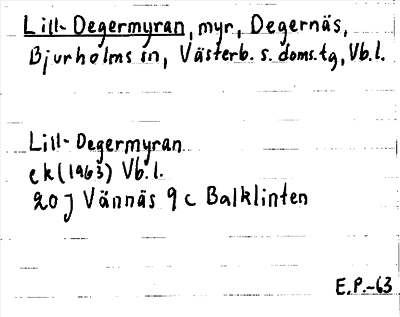 Lill-Degermyran, myr, Degernäs,
Bjurholms sn, Västerb. s. doms.tg, Vb.l.
Lill-Degermyran
ek (1963) Vb.l.
20 J Vännäs 9 c Balklinten
E.P.-63